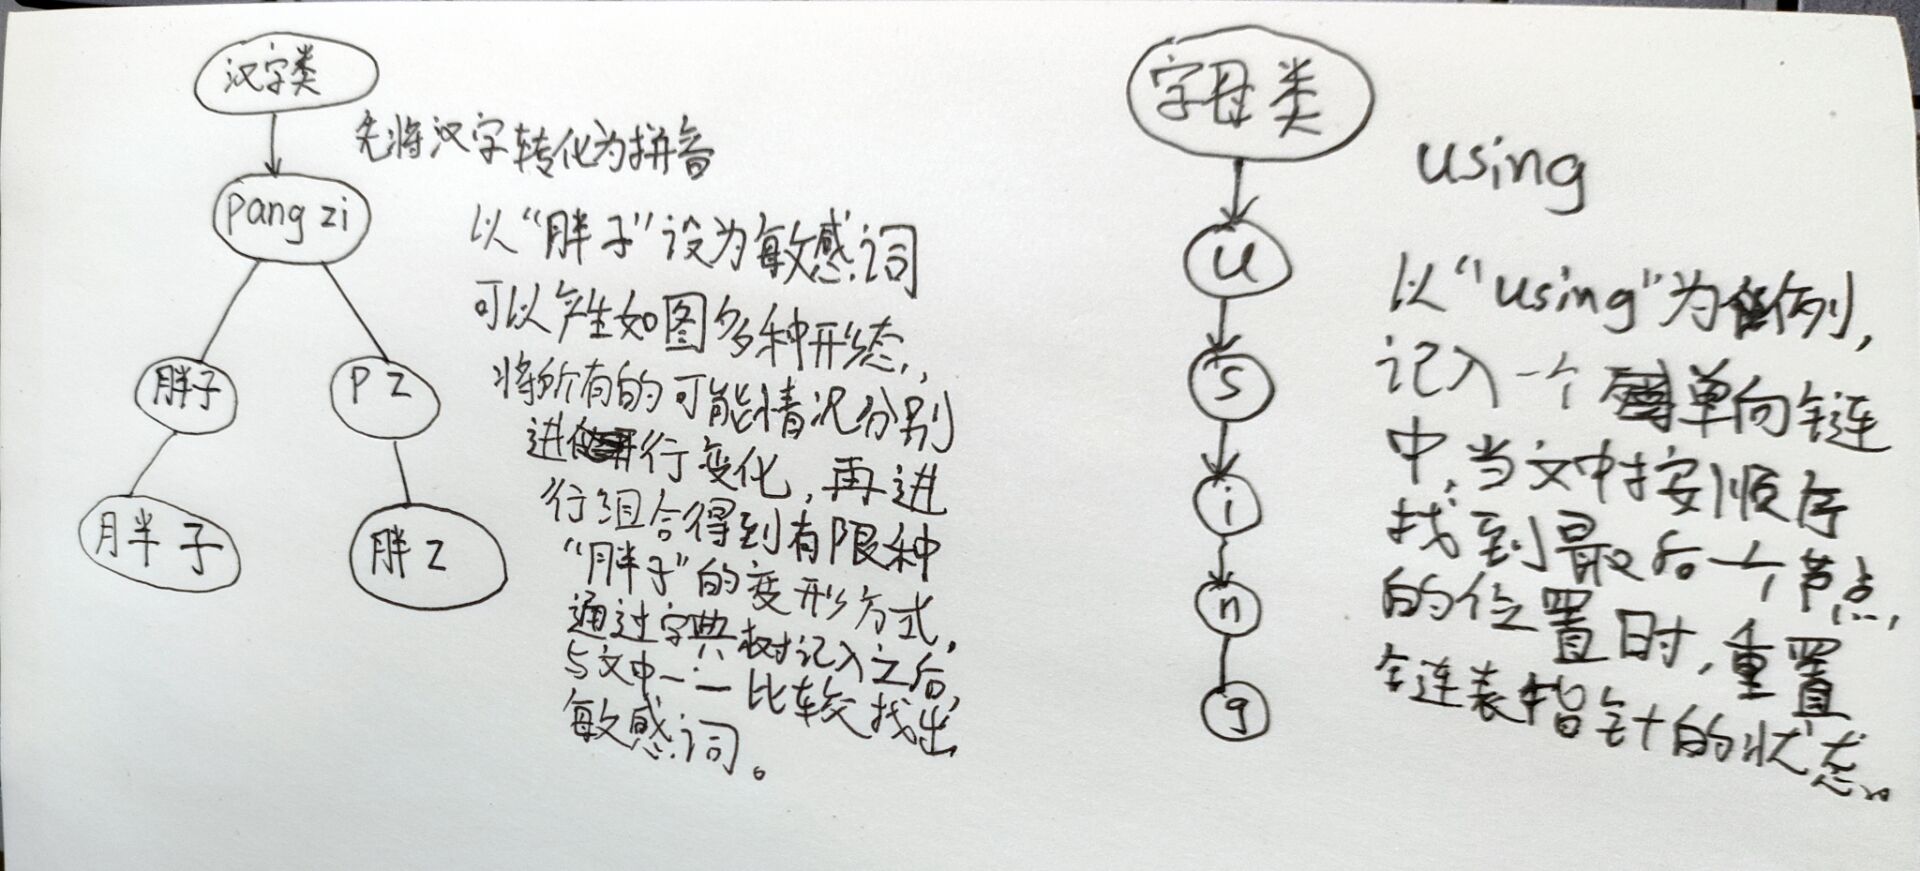 汉字类
先将汉字转化为拼音
pang zi
胖子
P Z
月半子
胖Z
以“胖子”设为敏感词
可以产生如图多种形态,
将所有的可能情况分别
进行变化,再进
行组合得到有限种
“胖子”的变形方式,
通过字典树记入之后,
与文中一一比较找出
敏感词。
字母类
using
u
s
i
n
g
以“using”为例,
记入一个单向链
中,当文中按顺序
找到最后一个节点
的位置时,重置
链表指针的状态。